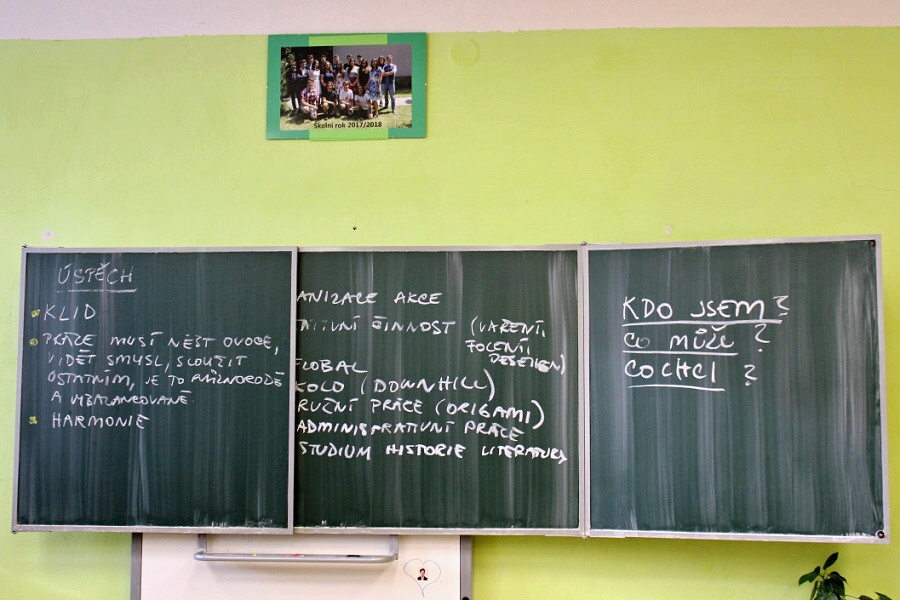 Školní rok 2017/2018
ÚSPĚCH
KLID
PRÁCE MUSÍ NÉST OVOCE,
VIDĚT SMYSL, SLOUŽIT
OSTATNÍM, JE TO RŮZNORODÉ
A VYBALANCOVANÉ
HARMONIE
ANIZACE AKCE
ČINNOST (VAŘENÍ,
FOCENÍ
FLOBAL
KOLO (DOWNHILL)
RUČNÍ PRÁCE (ORIGAMI)
ADMINISRATIVNÍ PRÁCE
STUDIUM HISTORIE LITERATURY
KDO JSEM?
CO MŮŽU ?
CO CHCI ?